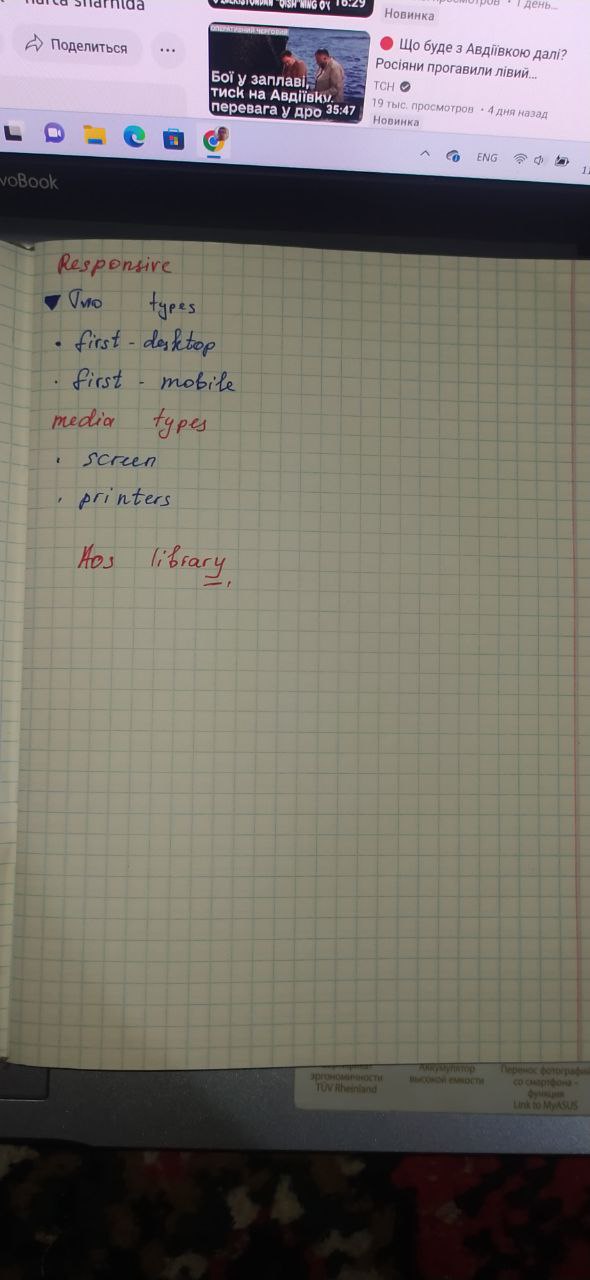 sharhida
Поделиться
16:29
1 день...
Новинка
ОПЕРАТИВНИЙ ЧЕРГОВИЙ
Бої у заплаві,
тиск на Авдіївку,
перевага у дро 35:47
Що буде з Авдіївкою далі?
Росіяни прогавили лівий...
ТСН
19 тыс. просмотров • 4 дня назад
Новинка
ENG
voBook
Responsive
Two types
• first - desktop
• first - mobile
media types
• screen
• printers
Aos library
эргономичности
TÜV Rheinland
Аккумулятор
высокой емкости
Перенос фотографи
со смартфона –
функция
Link to MyASUS